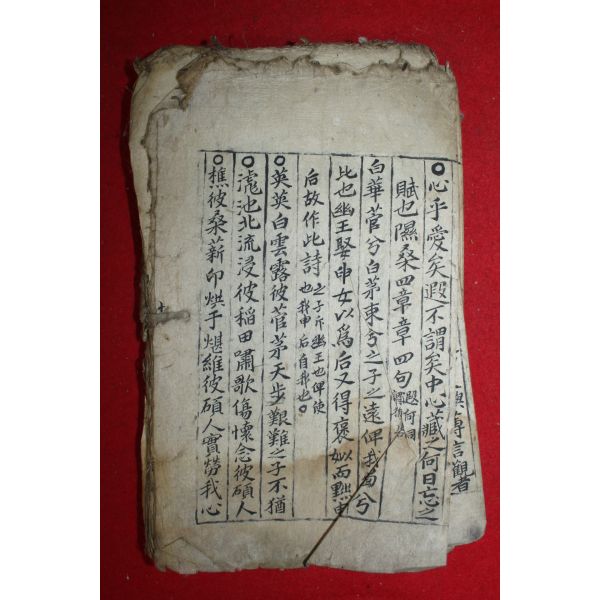 傳言觀者
○心乎愛矣遐不謂矣中心藏之何日忘之
賦也隰桑四章章四句遐何同
白華菅兮白茅束兮之子之遠俾我兮
比也幽王娶申女以爲后又得褒姒而黜申
后故作此詩之子斥幽王也俾使也我申后自我也○
○英英白雲露彼菅茅天步艱難之子不猶
○滮池北流浸彼稻田嘯歌傷懷念彼碩人
○樵彼桑薪卬烘于煁維彼碩人實勞我心